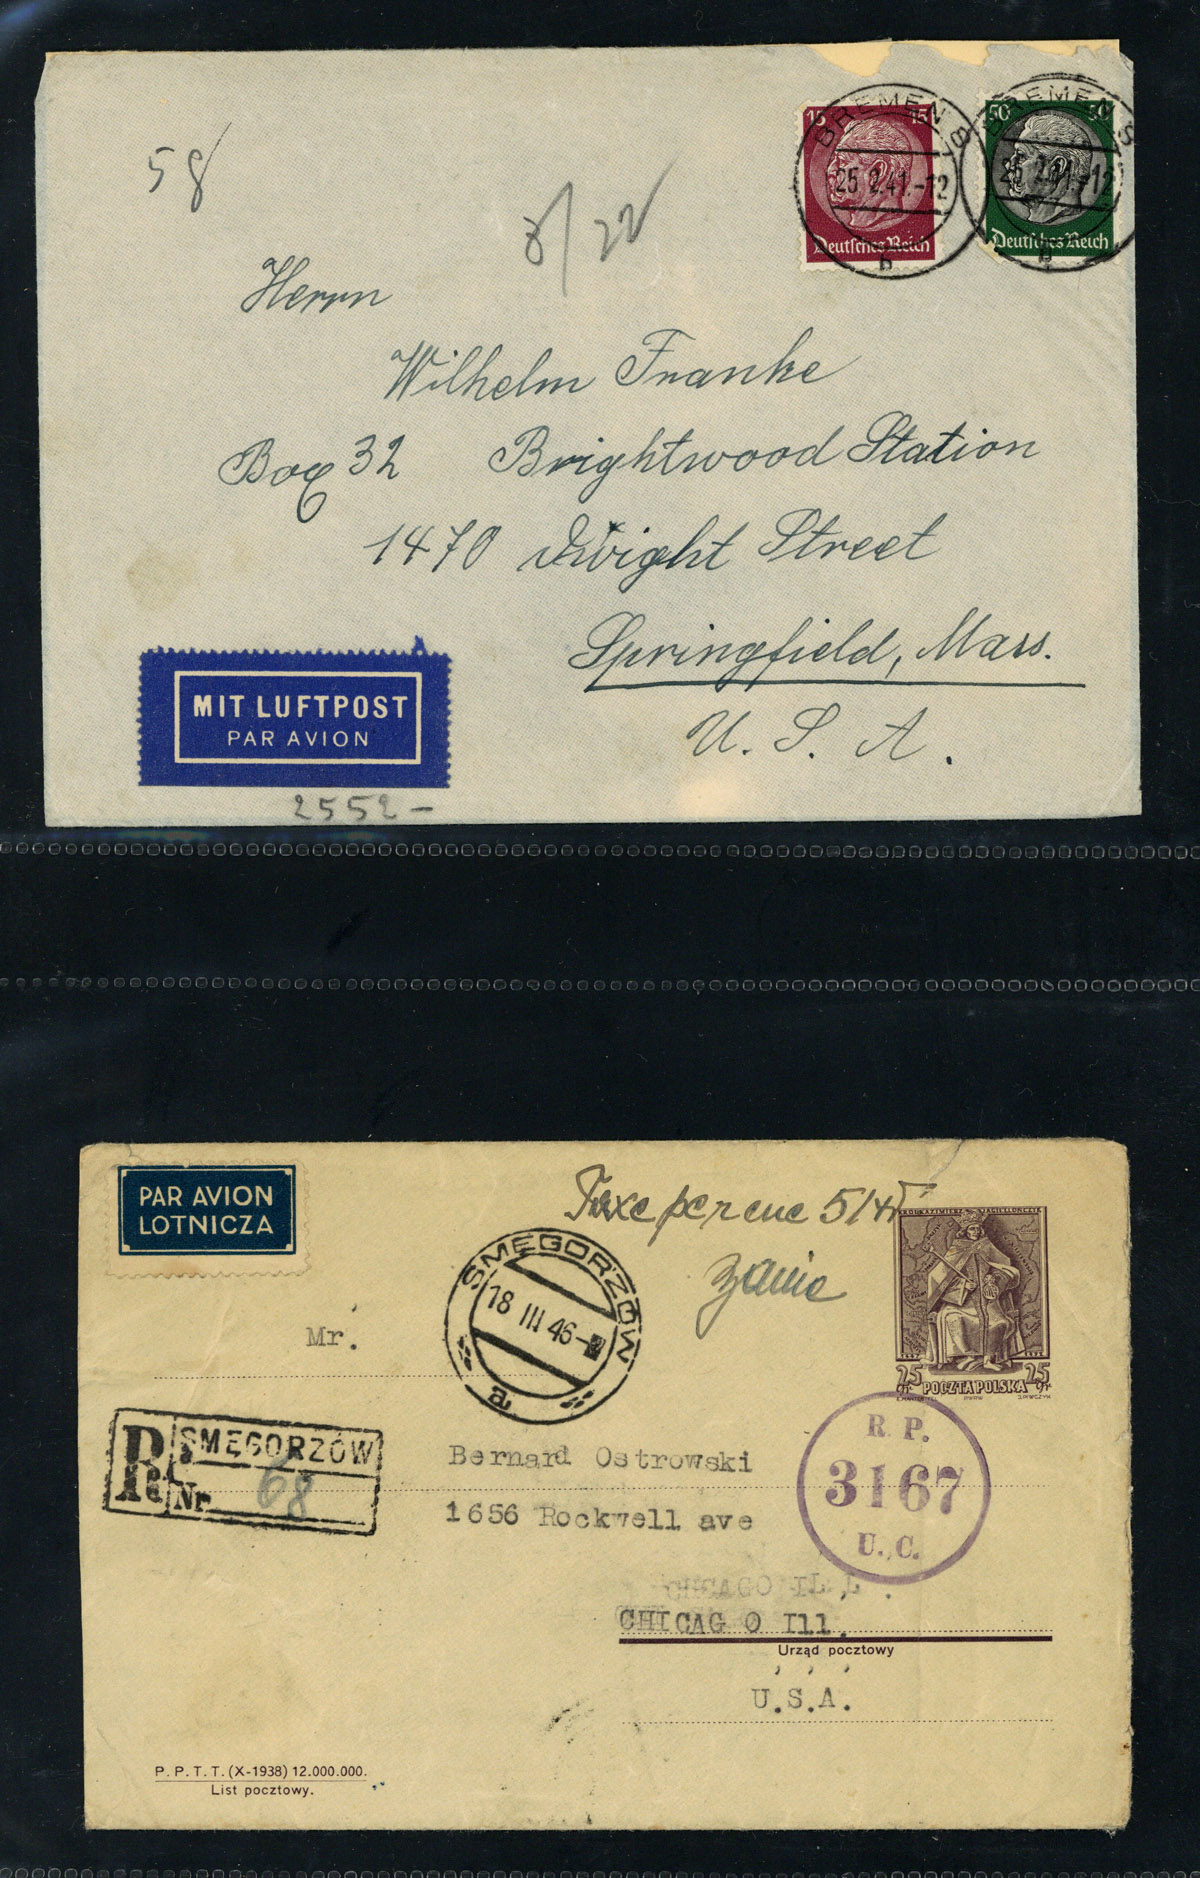 15 15
Deutsches Reich
50 50
Deutsches Reich
BREMEN
25.2.41.-12
b
BREMEN
25.2.41.-12
b
58
8/22
Herrn
Wilhelm Franke
Box 32 Brightwood Station
1470 Dwight Street
Springfield, Mass.
U. S. A.
MIT LUFTPOST
PAR AVION
2552-
PAR AVION
LOTNICZA
Taxe percue 5/45
SMĘGORZÓW
18 III 46
a
25 gr POCZTA POLSKA 25 gr
Mr.
R SMĘGORZÓW
Nr 68
Bernard Ostrowski
1656 Rockwell ave
R. P.
3167
U. C.
CHICAGO ILL.
CHICAG O Ill.
Urząd pocztowy
U.S.A.
P. P. T. T. (X-1938) 12.000.000.
List pocztowy.